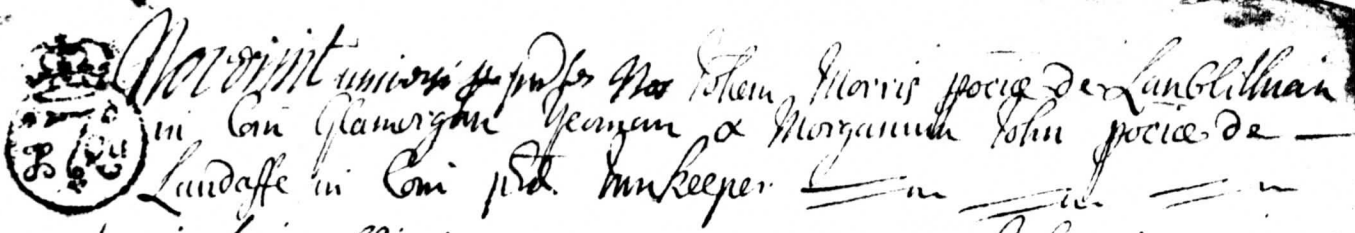 Noverint universi p pntes Nos Johem Morris pociæ de Lanblithian
in Com Glamorgan Yeoman & Morganum John pociæ de
Landaffe in Com pred. Innkeeper